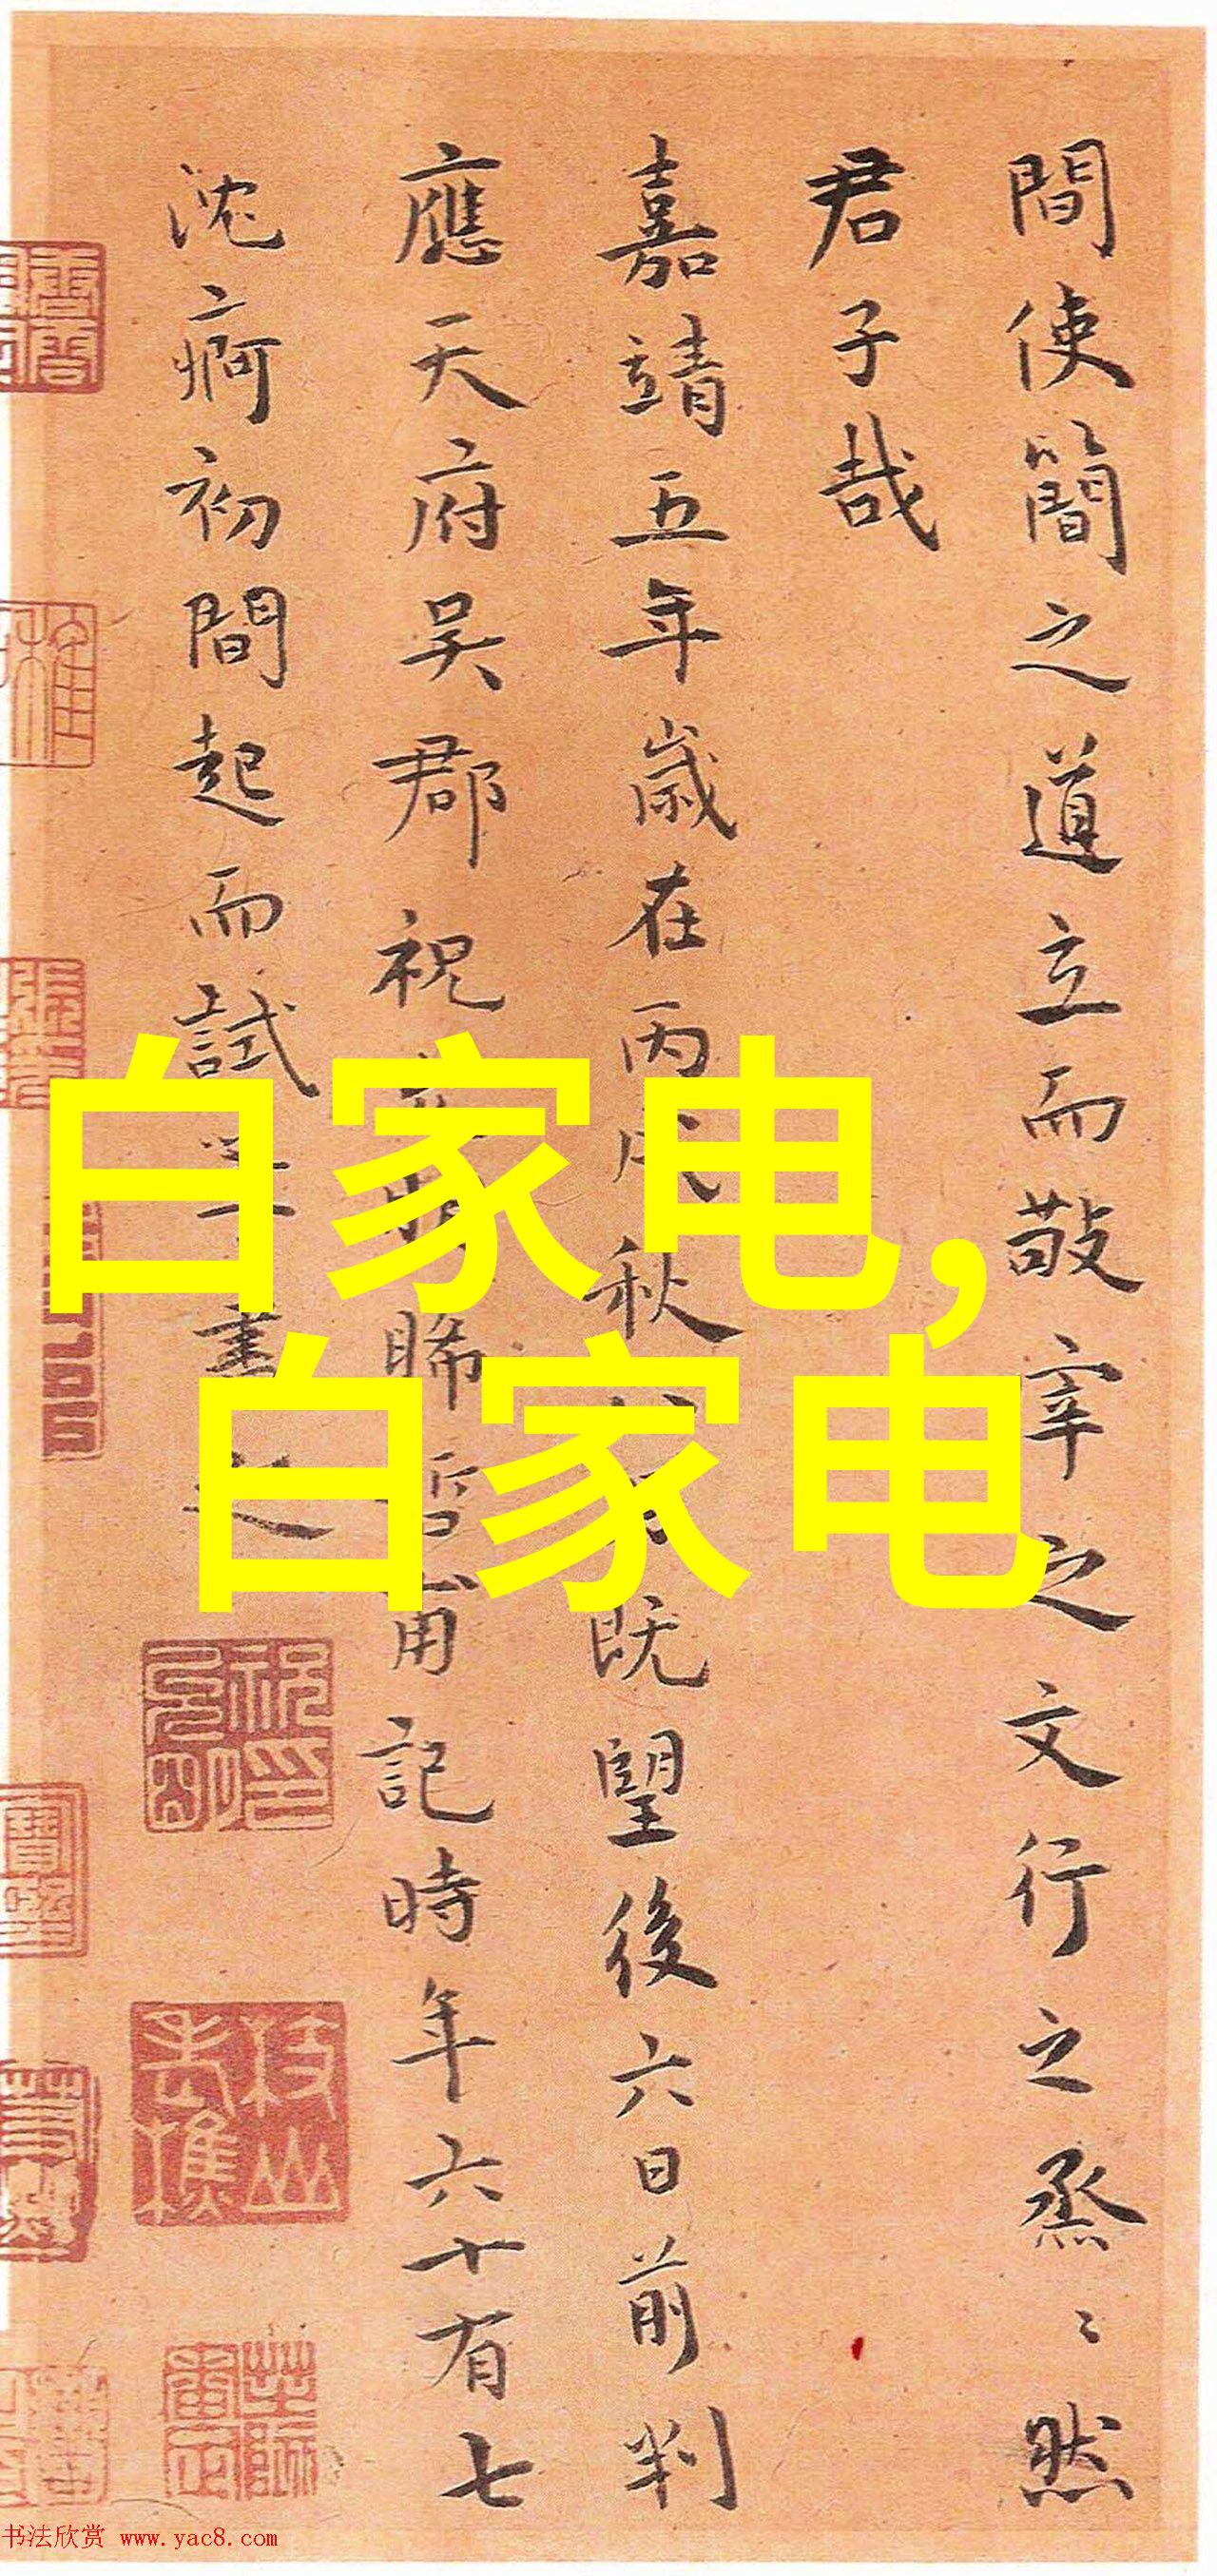 間使簡之道立而敬宰之文行之烝〻然
君子哉
嘉靖五年歲在丙戌秋既望後六日前判
應天府吳郡祝睎哲甫記時年六十有七
沈痾初間起而試書之
白家电,
白家电
书法欣赏 www.yac8.com